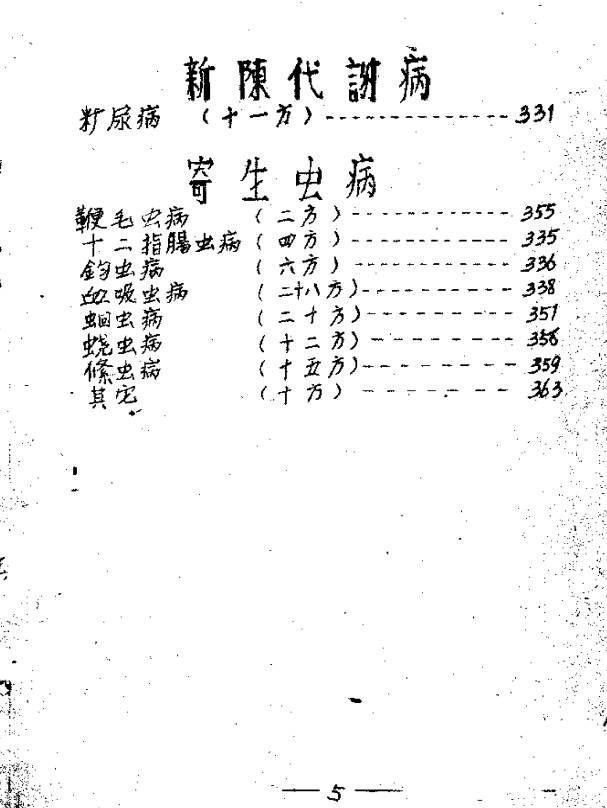 新陳代謝病
籵尿病 （十一方）--------------331
寄生虫病
鞭毛虫病 （二方）------------355
十二指腸虫病（四方）------------335
鈎虫病 （六方）------------336
血吸虫病 （二十八方）------------338
蛔虫病 （二十方）------------351
蛲虫病 （十二方）------------358
絛虫病 （十五方）------------359
其它 （十方）------------363
—5—